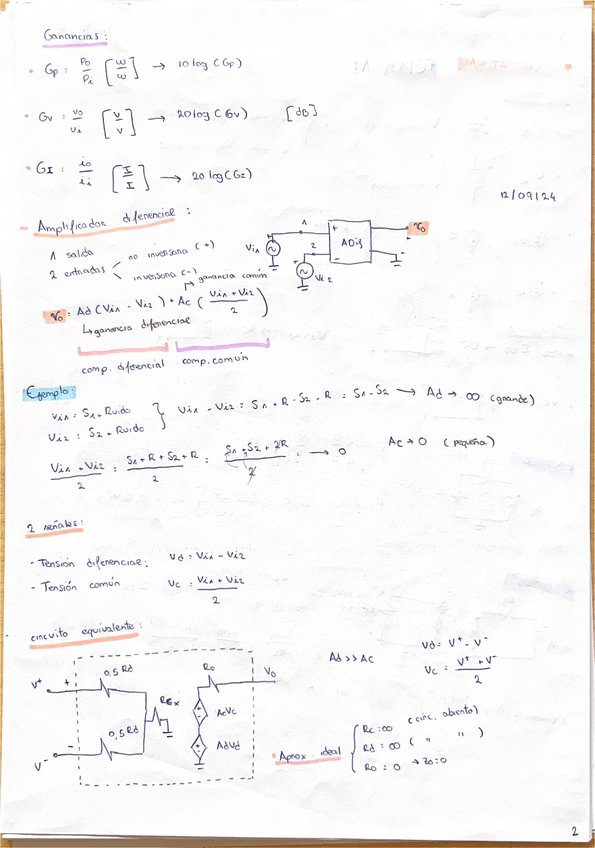 Ganancias:
• Gp : Po/Pi [w/w] → 10 log (Gp)
• Gv : vo/vi [v/v] → 20 log (Gv) [dB]
• GI : io/ii [I/I] → 20 log (GI)
12/09/24
- Amplificador diferencial :
1 salida
2 entradas < no inversora (+)
inversora (-)
Vi1 1 + ADif vo
2 - Vi2
↱ ganancia común
vo : Ad (Vi1 - Vi2) + Ac (Vi1 + Vi2 / 2)
↳ ganancia diferencial
comp. diferencial comp. común
Ejemplo:
Vi1 = S1 + Ruido
Vi2 = S2 + Ruido
} Vi1 - Vi2 = S1 + R - S2 - R = S1 - S2 → Ad → ∞ (grande)
Vi1 + Vi2 / 2 = S1 + R + S2 + R / 2 = S1 + S2 + 2R / 2 = → 0
Ac → 0 (pequeña)
2 señales:
- Tensión diferencial: Vd = Vi1 - Vi2
- Tensión común Vc = Vi1 + Vi2 / 2
circuito equivalente:
V+ + 0,5 Rd
Ro Vo
AcVc
AdVd
V- - 0,5 Rd
Ad >> Ac
Vd = V+ - V-
Vc = V+ + V- / 2
• Aprox. ideal { Rc = ∞ (circ. abierto)
Rd = ∞ ( " " )
Ro = 0 → Zo = 0
2